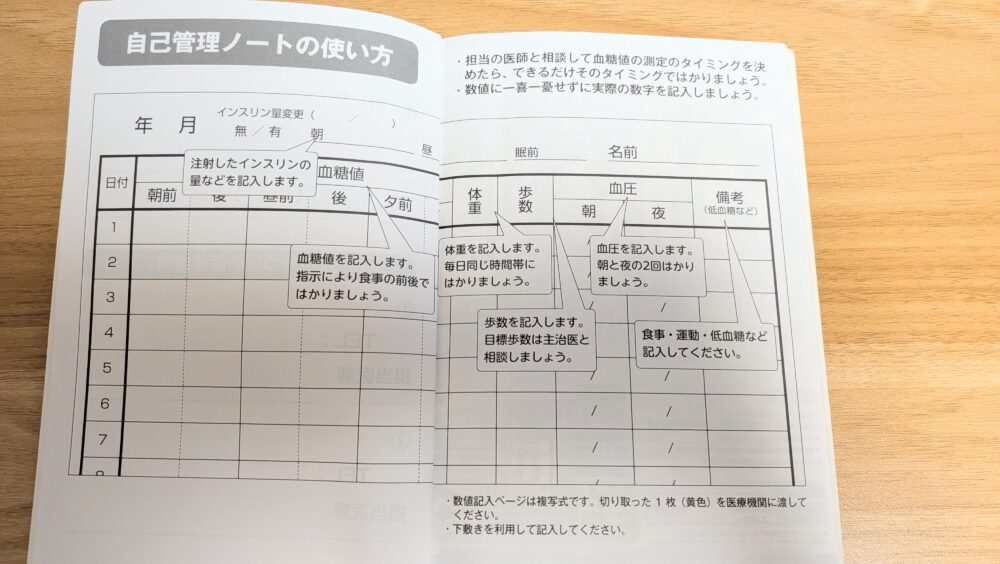 自己管理ノートの使い方
・担当の医師と相談して血糖値の測定のタイミングを決
めたら、できるだけそのタイミングではかりましょう。
・数値に一喜一憂せずに実際の数字を記入しましょう。
年 月
インスリン量変更（ ／ ）
無 ／ 有 朝 昼
眠前 名前
注射したインスリンの
量などを記入します。
日付 血糖値 体重 歩数 血圧 備考
（低血糖など）
朝前 後 昼前 後 夕前 朝 夜
1
2
3
4
5
6 / /
7 / /
8
血糖値を記入します。
指示により食事の前後で
はかりましょう。
体重を記入します。
毎日同じ時間帯に
はかりましょう。
血圧を記入します。
朝と夜の2回はかり
ましょう。
歩数を記入します。
目標歩数は主治医と
相談しましょう。
食事・運動・低血糖など
記入してください。
・数値記入ページは複写式です。切り取った1枚（黄色）を医療機関に渡して
ください。
・下敷きを利用して記入してください。